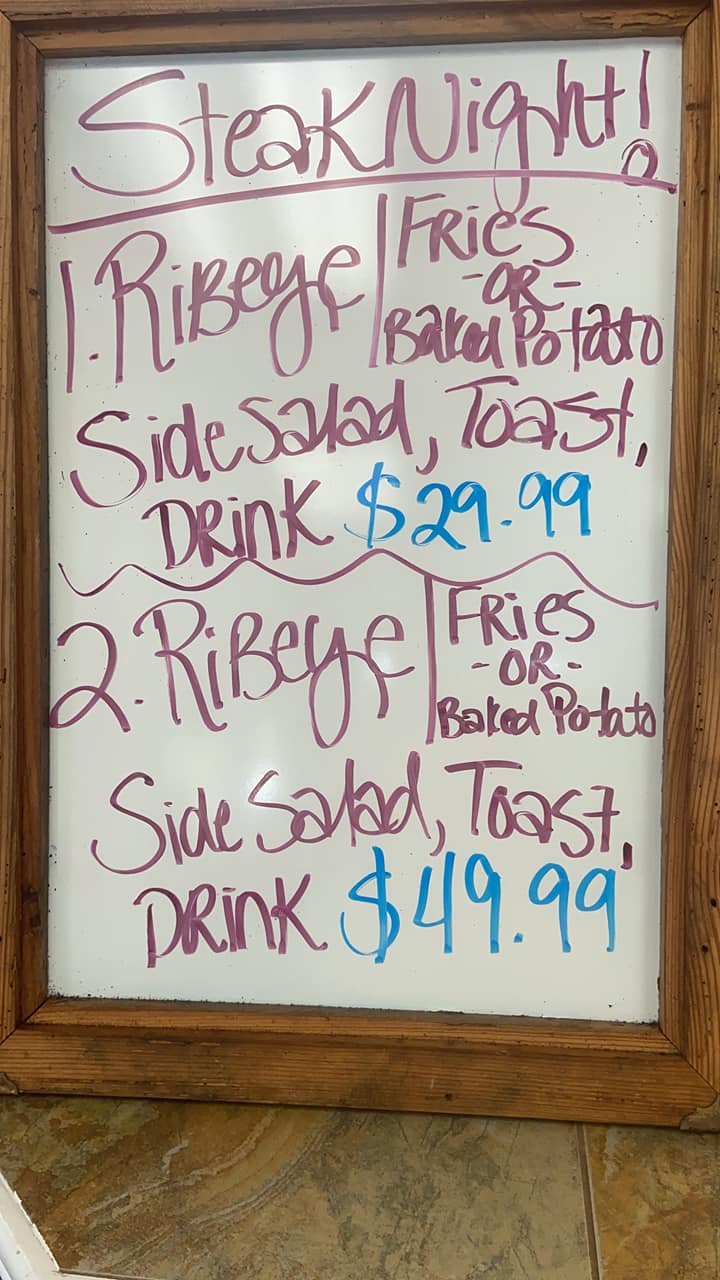 Steak Night!
1. Ribeye | Fries
-OR-
Baked Potato
Side Salad, Toast,
Drink $29.99
2. Ribeye | Fries
-OR-
Baked Potato
Side Salad, Toast,
Drink $49.99